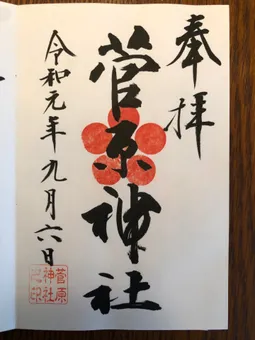 奉拝
菅原神社
令和元年九月六日
菅原
神社